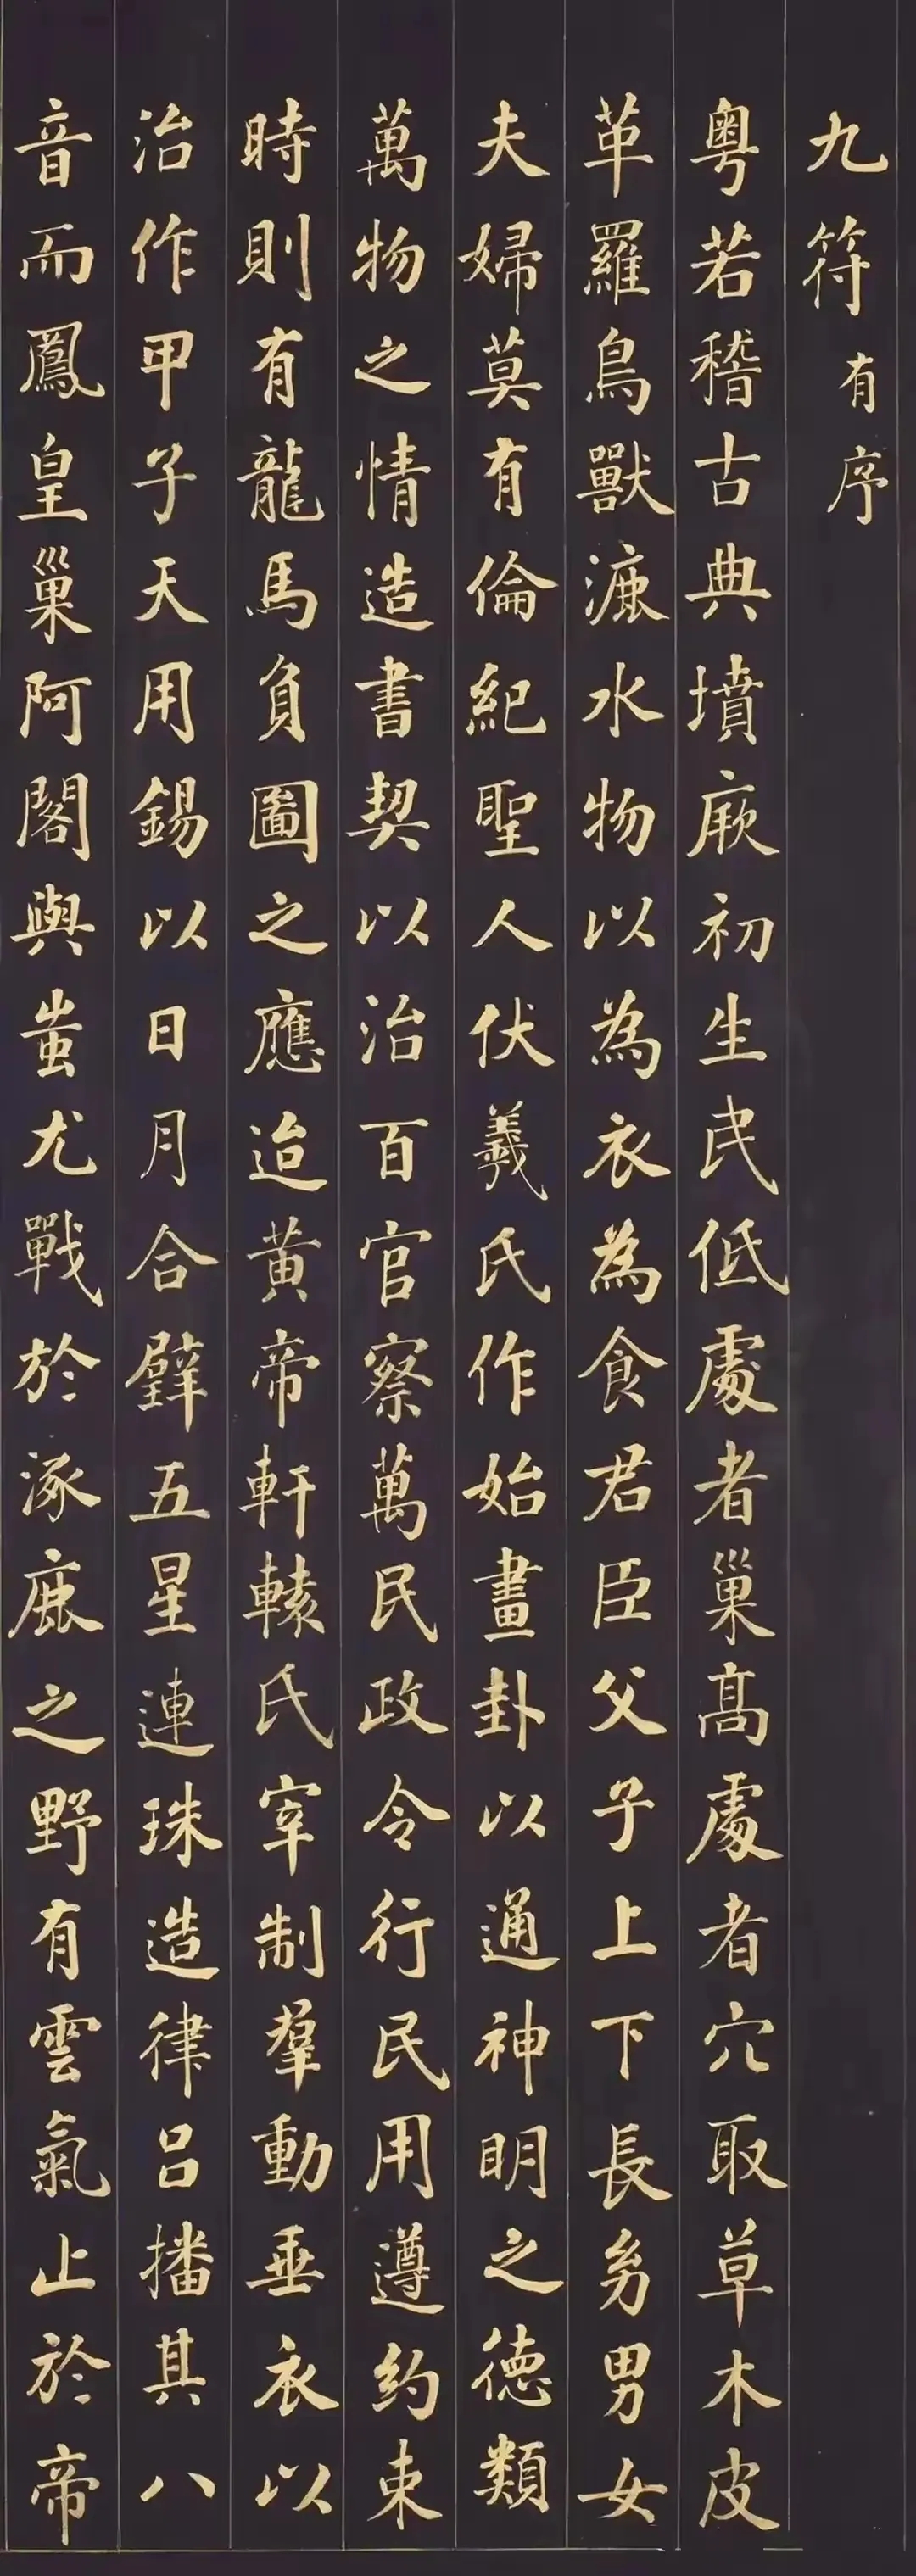 九符有序
粵若稽古典墳厥初生民低處者巢高處者穴取草木皮
革羅鳥獸漉水物以為衣為食君臣父子上下長幼男女
夫婦莫有倫紀聖人伏羲氏作始畫卦以通神明之德類
萬物之情造書契以治百官察萬民政令行民用遵約束
時則有龍馬負圖之應迨黃帝軒轅氏宰制羣動垂衣以
治作甲子天用錫以日月合璧五星連珠造律呂播其八
音而鳳皇巢阿閣與蚩尤戰於涿鹿之野有雲氣止於帝